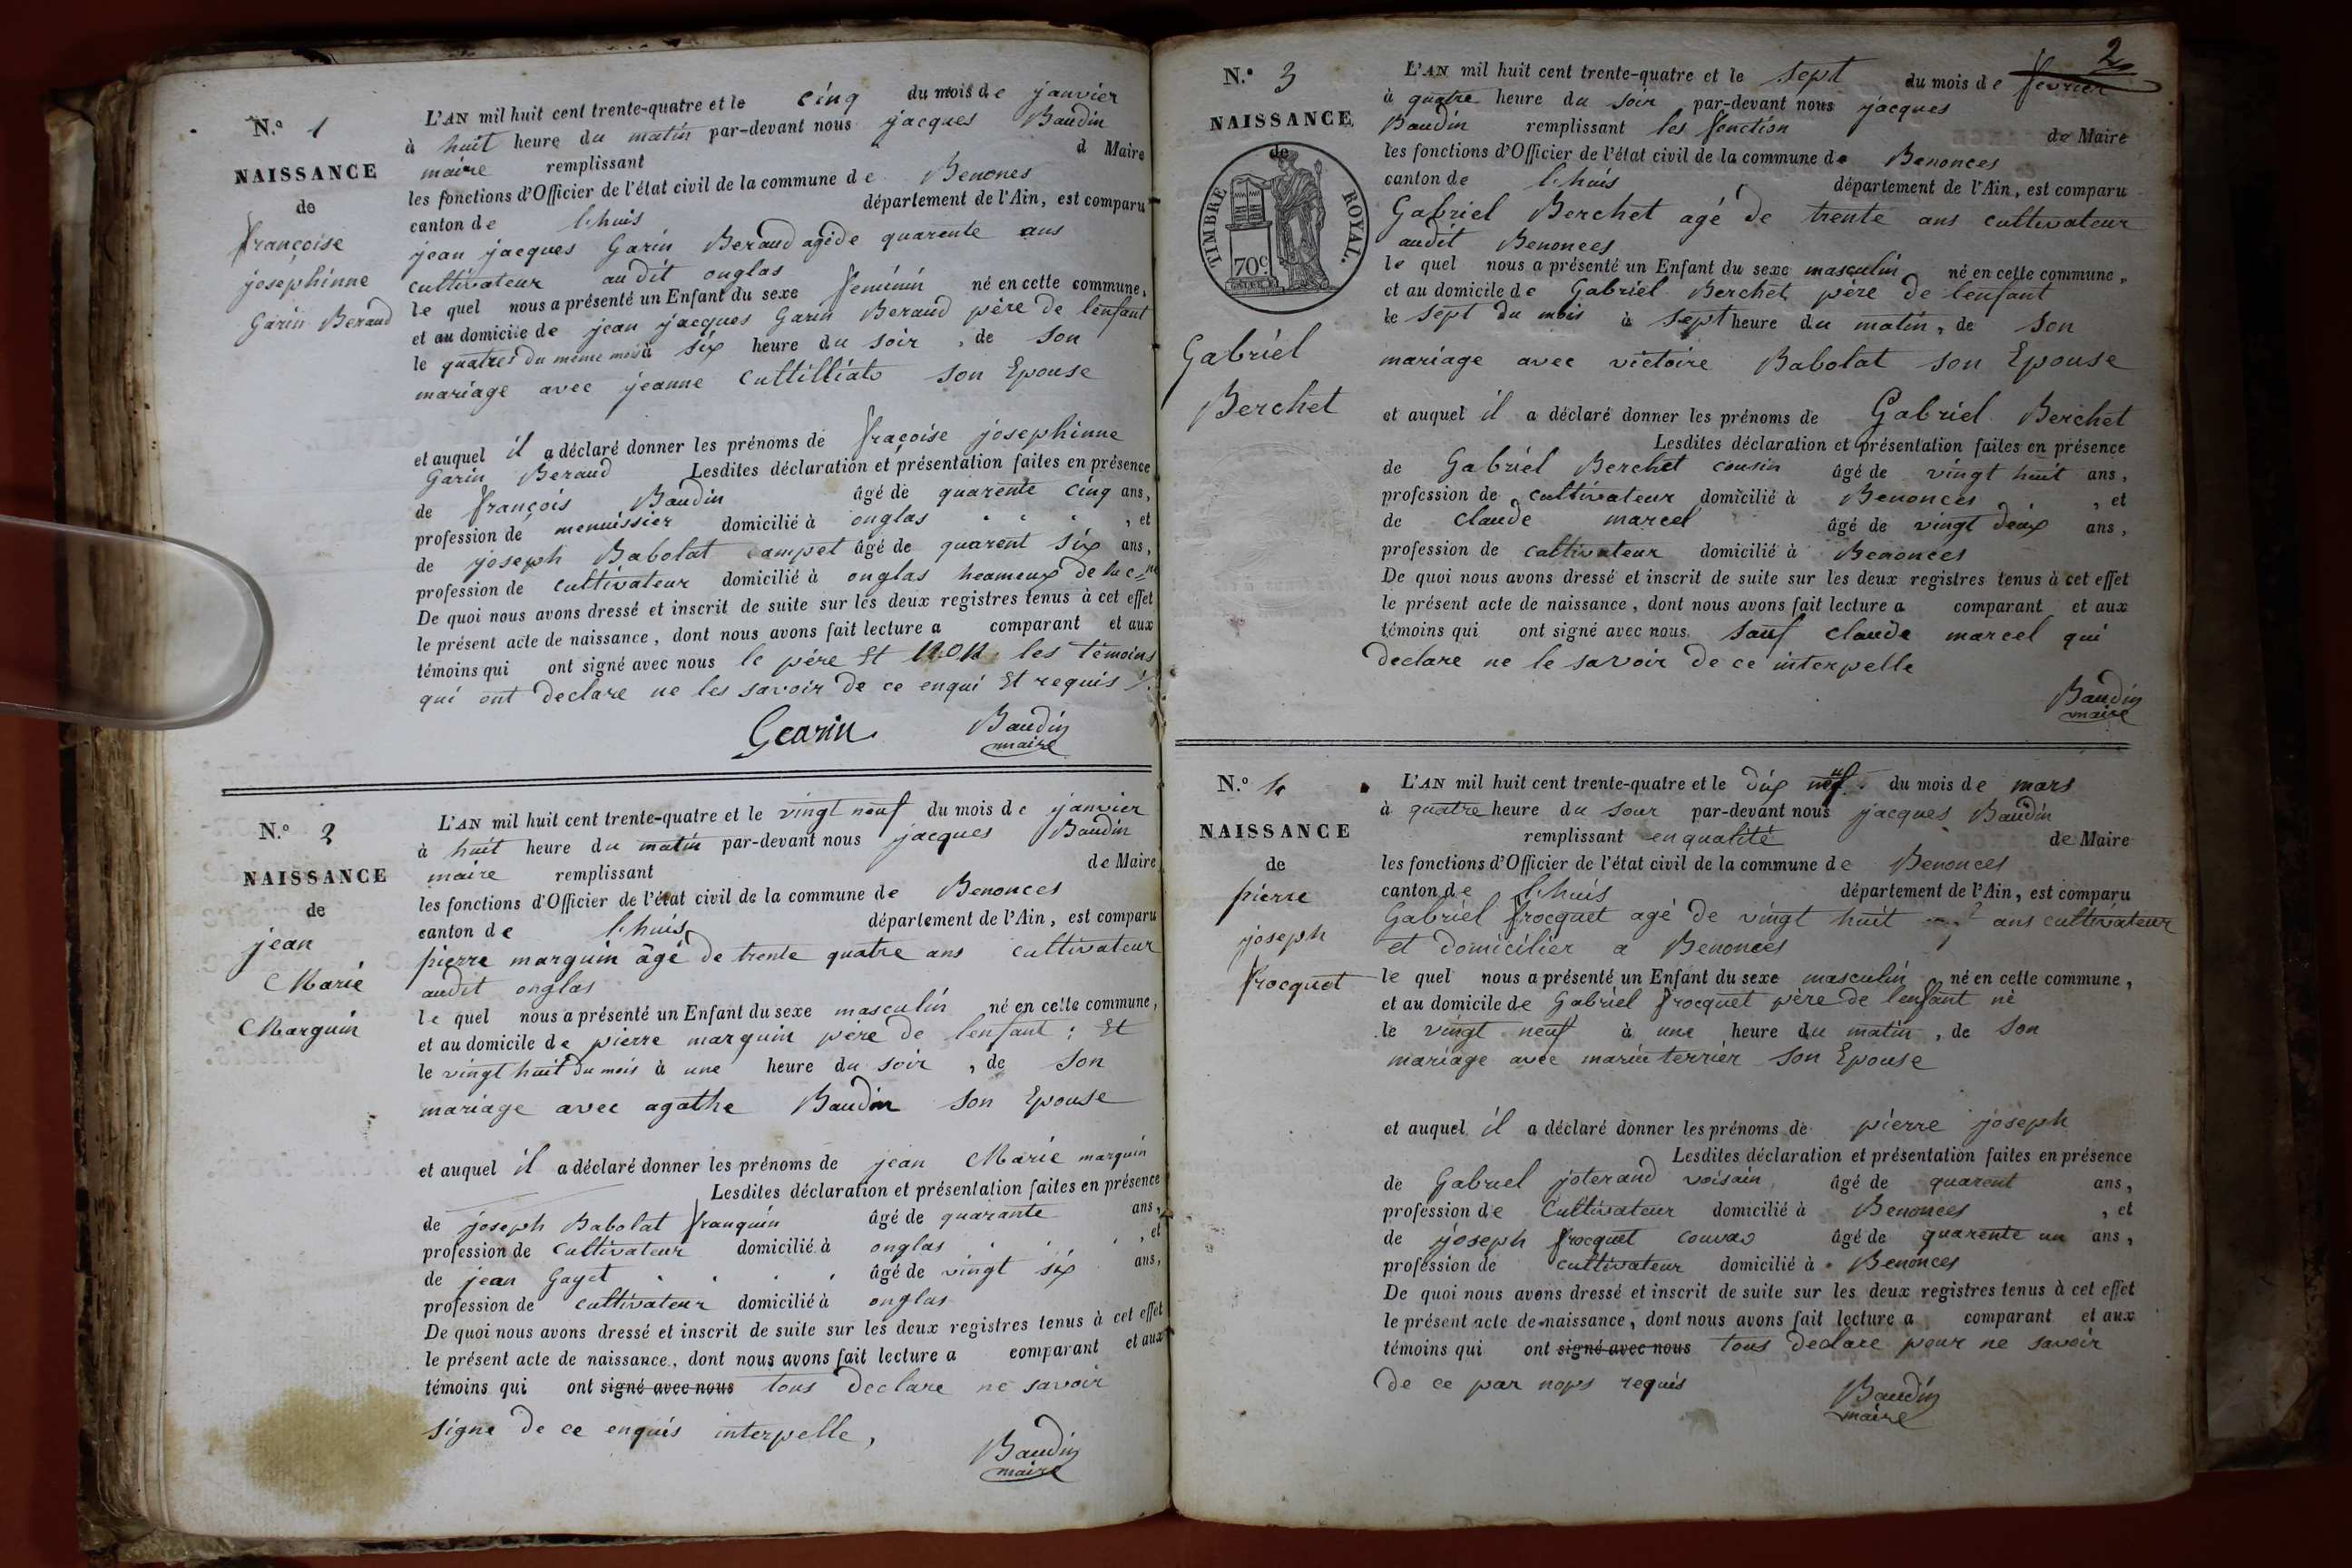 N.o 1
NAISSANCE
de
françoise
josephinne
Garin Beraud
L'AN mil huit cent trente-quatre et le cinq du mois de janvier
à huit heure du matin par-devant nous jacques Baudin
maire remplissant d Maire
les fonctions d'Officier de l'état civil de la commune de Benones
canton de lhuis département de l'Ain, est comparu
jean jacques Garin Beraud agé de quarente ans
cultivateur au dit onglas
le quel nous a présenté un Enfant du sexe feminin né en cette commune,
et au domicile de jean jacques Garin Beraud père de lenfant
le quatres du même mois à six heure du soir , de son
mariage avec jeanne Cuttilliat son Epouse
et auquel il a déclaré donner les prénoms de fraçoise josephinne
Garin Beraud Lesdites déclaration et présentation faites en présence
de françois Baudin âgé de quarente cinq ans,
profession de menuissier domicilié à onglas , et
de joseph Babolat campet âgé de quarent six ans,
profession de cultivateur domicilié à onglas heameux de la c
De quoi nous avons dressé et inscrit de suite sur les deux registres tenus à cet effet
le présent acte de naissance, dont nous avons fait lecture a comparant et aux
témoins qui ont signé avec nous le père Et non les témoins
qui ont declare ne les savoir de ce enqui Et requis
Gearin Baudin
maire
N.o 2
NAISSANCE
de
jean
Marie
Marguin
L'AN mil huit cent trente-quatre et le vingt neuf du mois de janvier
à huit heure du matin par-devant nous jacques Baudin
maire remplissant de Maire
les fonctions d'Officier de l'état civil de la commune de Benonces
canton de lhuis département de l'Ain, est comparu
pierre marguin âgé de trente quatre ans cultivateur
audit onglas
le quel nous a présenté un Enfant du sexe masculin né en cette commune,
et au domicile de pierre marguin père de lenfant ; Et
le vingt huit du mois à une heure du soir , de son
mariage avec agathe Baudin son Epouse
et auquel il a déclaré donner les prénoms de jean Marie marguin
Lesdites déclaration et présentation faites en présence
de joseph Babolat franquin âgé de quarante ans,
profession de cultivateur domicilié à onglas , et
de jean Gayet âgé de vingt six ans,
profession de cultivateur domicilié à onglas
De quoi nous avons dressé et inscrit de suite sur les deux registres tenus à cet effet
le présent acte de naissance, dont nous avons fait lecture a comparant et aux
témoins qui ont signé avec nous tous declare ne savoir
signe de ce enquis interpelle,
Baudin
maire
2
N.o 3
NAISSANCE
de
TIMBRE ROYAL.
70c
Gabriel
Berchet
L'AN mil huit cent trente-quatre et le sept du mois de fevrier
à quatre heure du soir par-devant nous jacques
Baudin remplissant les fonction de Maire
les fonctions d'Officier de l'état civil de la commune de Benonces
canton de lhuis département de l'Ain, est comparu
Gabriel Berchet agé de trente ans cultivateur
audit Benonces
le quel nous a présenté un Enfant du sexe masculin né en cette commune,
et au domicile de Gabriel Berchet père de lenfant
le sept du mois à sept heure du matin, de son
mariage avec victoire Babolat son Epouse
et auquel il a déclaré donner les prénoms de Gabriel Berchet
Lesdites déclaration et présentation faites en présence
de Gabriel Berchet cousin âgé de vingt huit ans,
profession de cultivateur domicilié à Benonces , et
de claude marcel âgé de vingt deux ans,
profession de cultivateur domicilié à Benonces
De quoi nous avons dressé et inscrit de suite sur les deux registres tenus à cet effet
le présent acte de naissance, dont nous avons fait lecture a comparant et aux
témoins qui ont signé avec nous. sauf claude marcel qui
declare ne le savoir de ce interpelle
Baudin
maire
N.o 4
NAISSANCE
de
pierre
joseph
frocquet
L'AN mil huit cent trente-quatre et le dix neuf du mois de mars
à quatre heure du sour par-devant nous jacques Baudin
remplissant en qualité de Maire
les fonctions d'Officier de l'état civil de la commune de Benonces
canton de lhuis département de l'Ain, est comparu
Gabriel frocquet agé de vingt huit ans cultivateur
et domicilier a Benonces
le quel nous a présenté un Enfant du sexe masculin né en cette commune,
et au domicile de Gabriel frocquet père de lenfant né
le vingt neuf à une heure du matin , de son
mariage avec marie terrier son Epouse
et auquel il a déclaré donner les prénoms de pierre joseph
Lesdites déclaration et présentation faites en présence
de Gabriel joterand voisain âgé de quarent ans,
profession de Cultivateur domicilié à Benonces , et
de joseph frocquet âgé de quarente un ans,
profession de cultivateur domicilié à Benonces
De quoi nous avons dressé et inscrit de suite sur les deux registres tenus à cet effet
le présent acte de naissance, dont nous avons fait lecture a comparant et aux
témoins qui ont signé avec nous tous declare pour ne savoir
de ce par nops requis
Baudin
maire